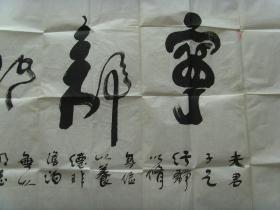 寧靜
夫君
子之
行靜
以脩
身儉
以養
德非
澹泊
無以